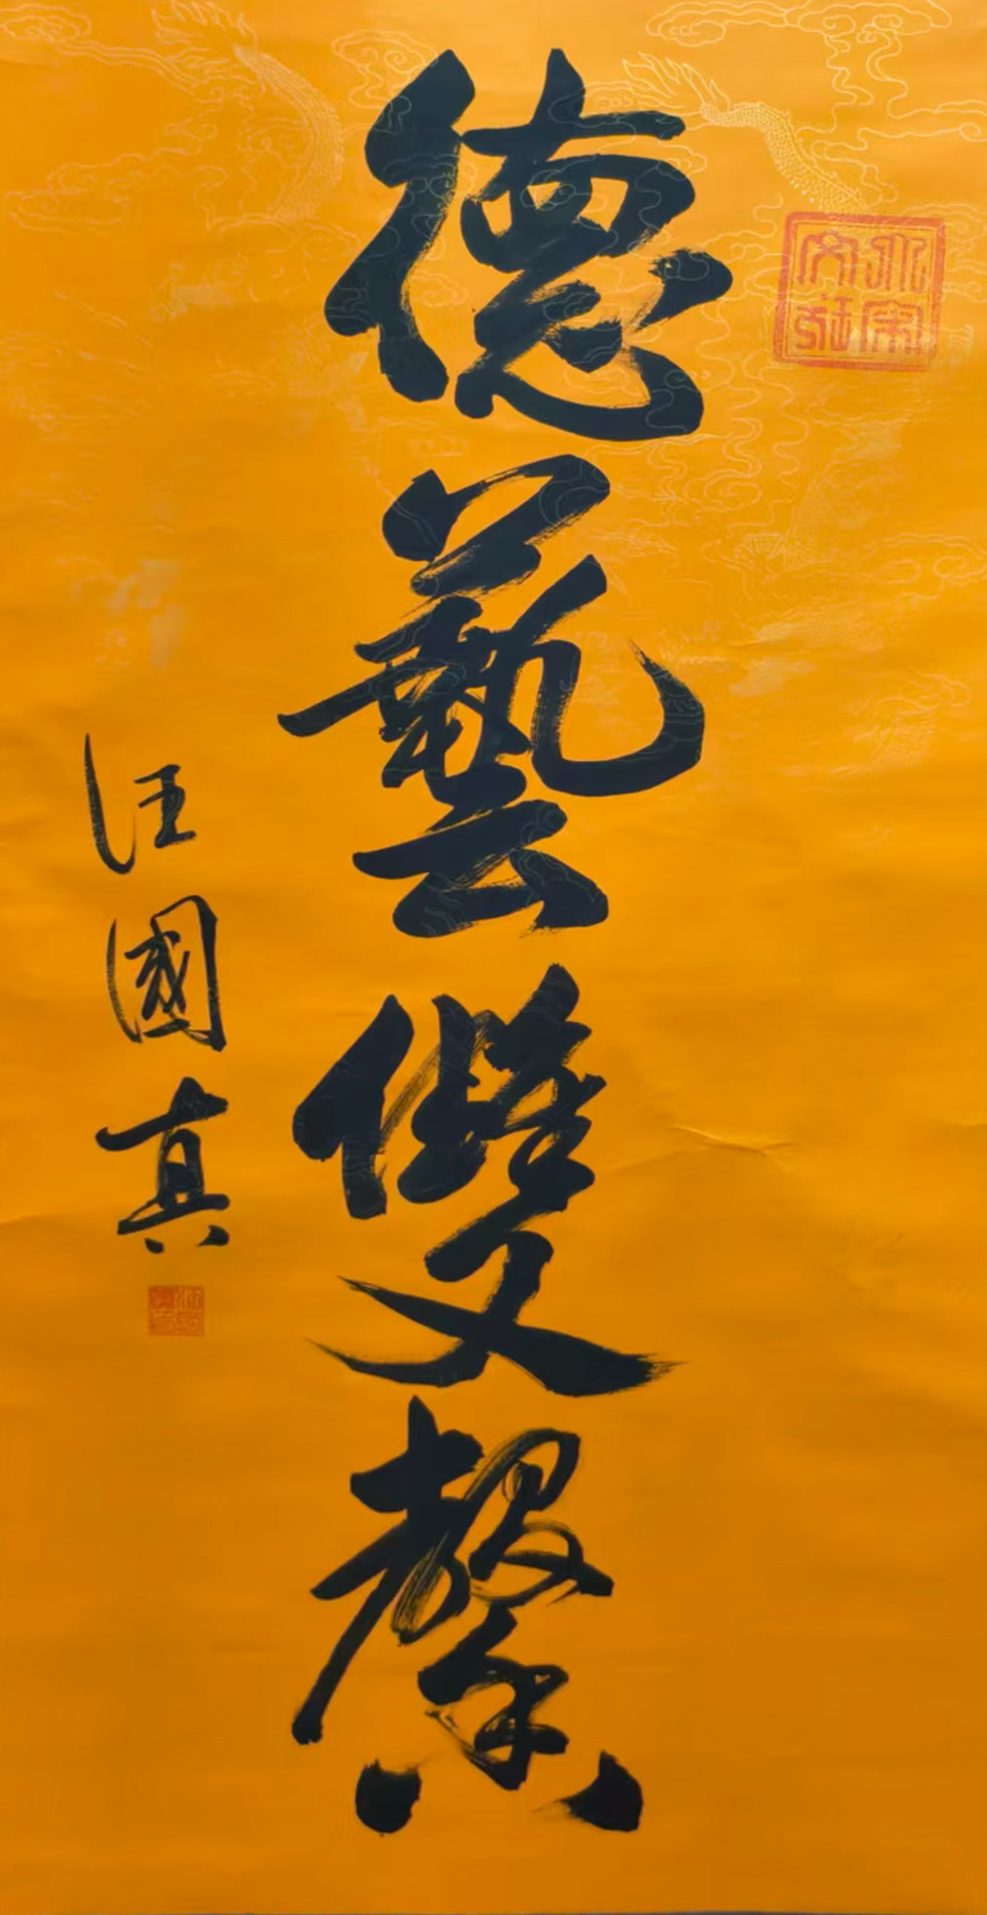 德藝雙馨
汪國真